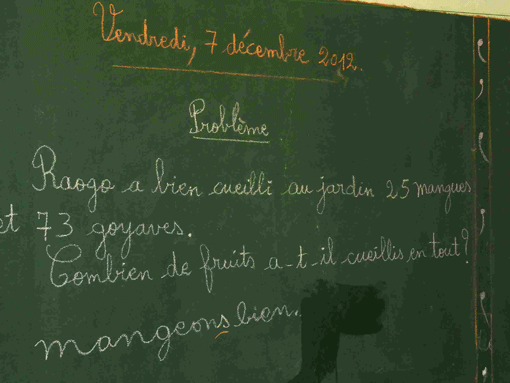 Vendredi, 7 décembre 2012.
Problème
Raogo a bien cueilli au jardin 25 mangues
et 73 goyaves.
Combien de fruits a-t-il cueillis en tout?
mangeons bien.